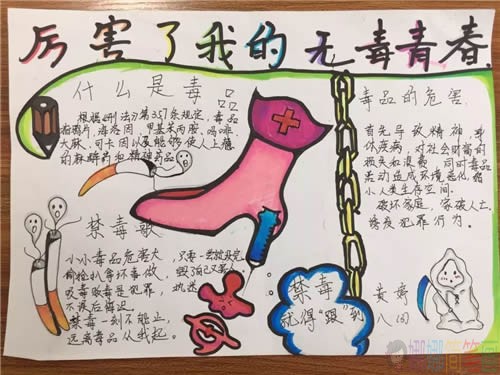 厉害了我的无毒青春
什么是毒品
根据《刑法》第357条规定，毒品
指鸦片，海洛因，甲基苯丙胺，吗啡，
大麻，可卡因以及能够使人上瘾
的麻醉药和精神药品
毒品的危害
首先导致精神，身
体疾病，对社会财富的
损失和浪费，同时毒品
活动造成环境恶化，缩
小人类生存空间。
破坏家庭，家破人亡
诱发犯罪行为。
禁毒歌
小小毒品危害大
偷抢扒拿坏事做
吸毒贩毒是犯罪，
不误后悔迟。
禁毒一刻不能止，
远离毒品从我起。
只要一
毁了自己又害人。
禁毒
就得“跟”到
八（3）